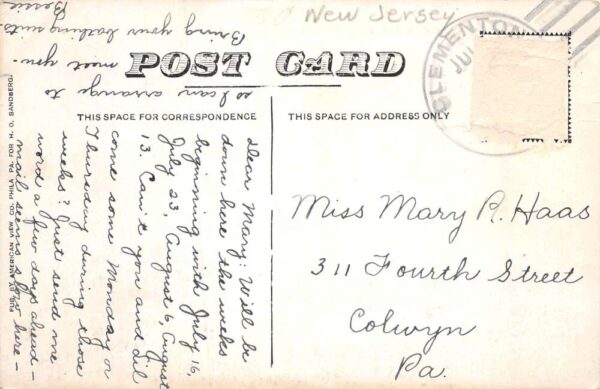 New Jersey
CLEMENTON
JUL
POST CARD
THIS SPACE FOR CORRESPONDENCE
THIS SPACE FOR ADDRESS ONLY
Dear Mary: Will be
down here the weeks
beginning with July 16,
July 23, August 6, August
13. Can't you and Lil
come some Monday or
Thursday during those
weeks? Just send me
word a few days ahead -
mail seems slow here -
so I can arrange to
meet you.
Bring your bathing suits.
Bessie
Miss Mary R. Haas
311 Fourth Street
Colwyn
Pa.
PUB. BY AMERICAN VIEW CO. PHILA PA. FOR H. O. SANDBERG